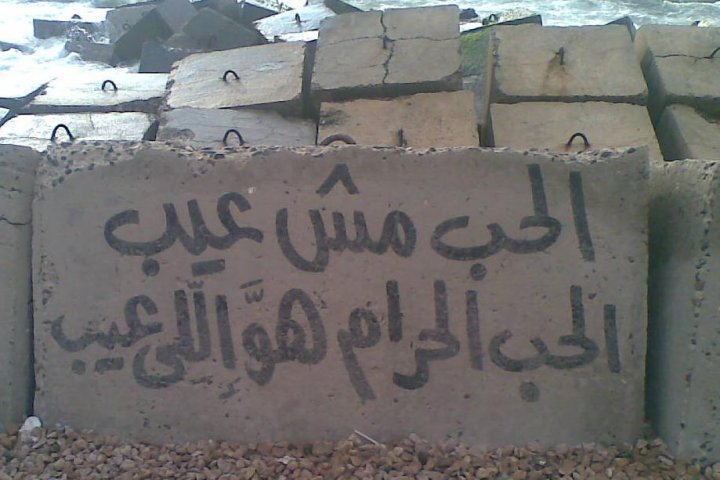 الحب مش عيب
الحب الحرام هوَّ اِللّى عيب